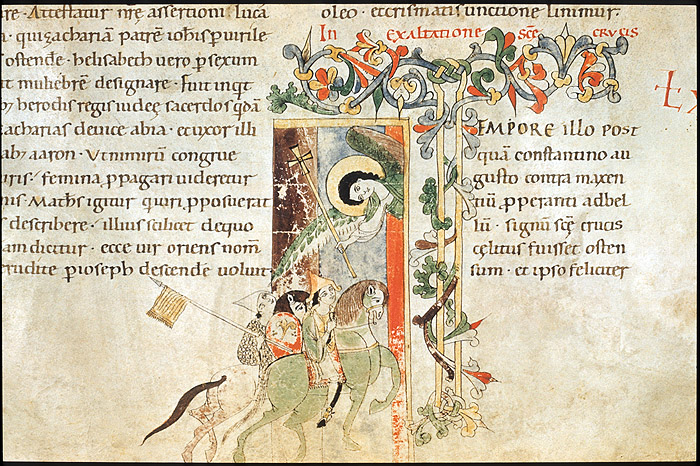 re · Attestatur nr̄ę assertioni lucā
qui zachariam patrē ioh̄is p uirile
ostende · helisabeth uero p sexum
it muliebrē designare · fuit inq̄t
herodis regis iudeę sacerdos q̄dā
acharias deuice abia · et uxor illi
aaron · Ut nimirū congrue
femina p pagari uideretur
igitur qui p posuerat
s describere · illius scilicet dequo
am dicitur · ecce uir oriens nom̄
erudite p ioseph descende uoluit
oleo · et crismatis unctione linimur.
In exaltatione scę crucis
TEMPORE ILLO POST
quā constantino au
gusto contra maxen
tiū p peranti ad bel
lū · signū scę crucis
cęlitus fuisset osten
sum · et ipso feliciter